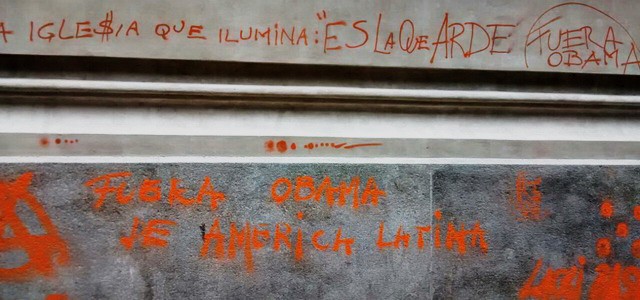 A IGLE$IA QUE ILUMINA: "ES LA QUE ARDE
FUERA
OBAMA
FUERA OBAMA
DE AMERICA LATINA